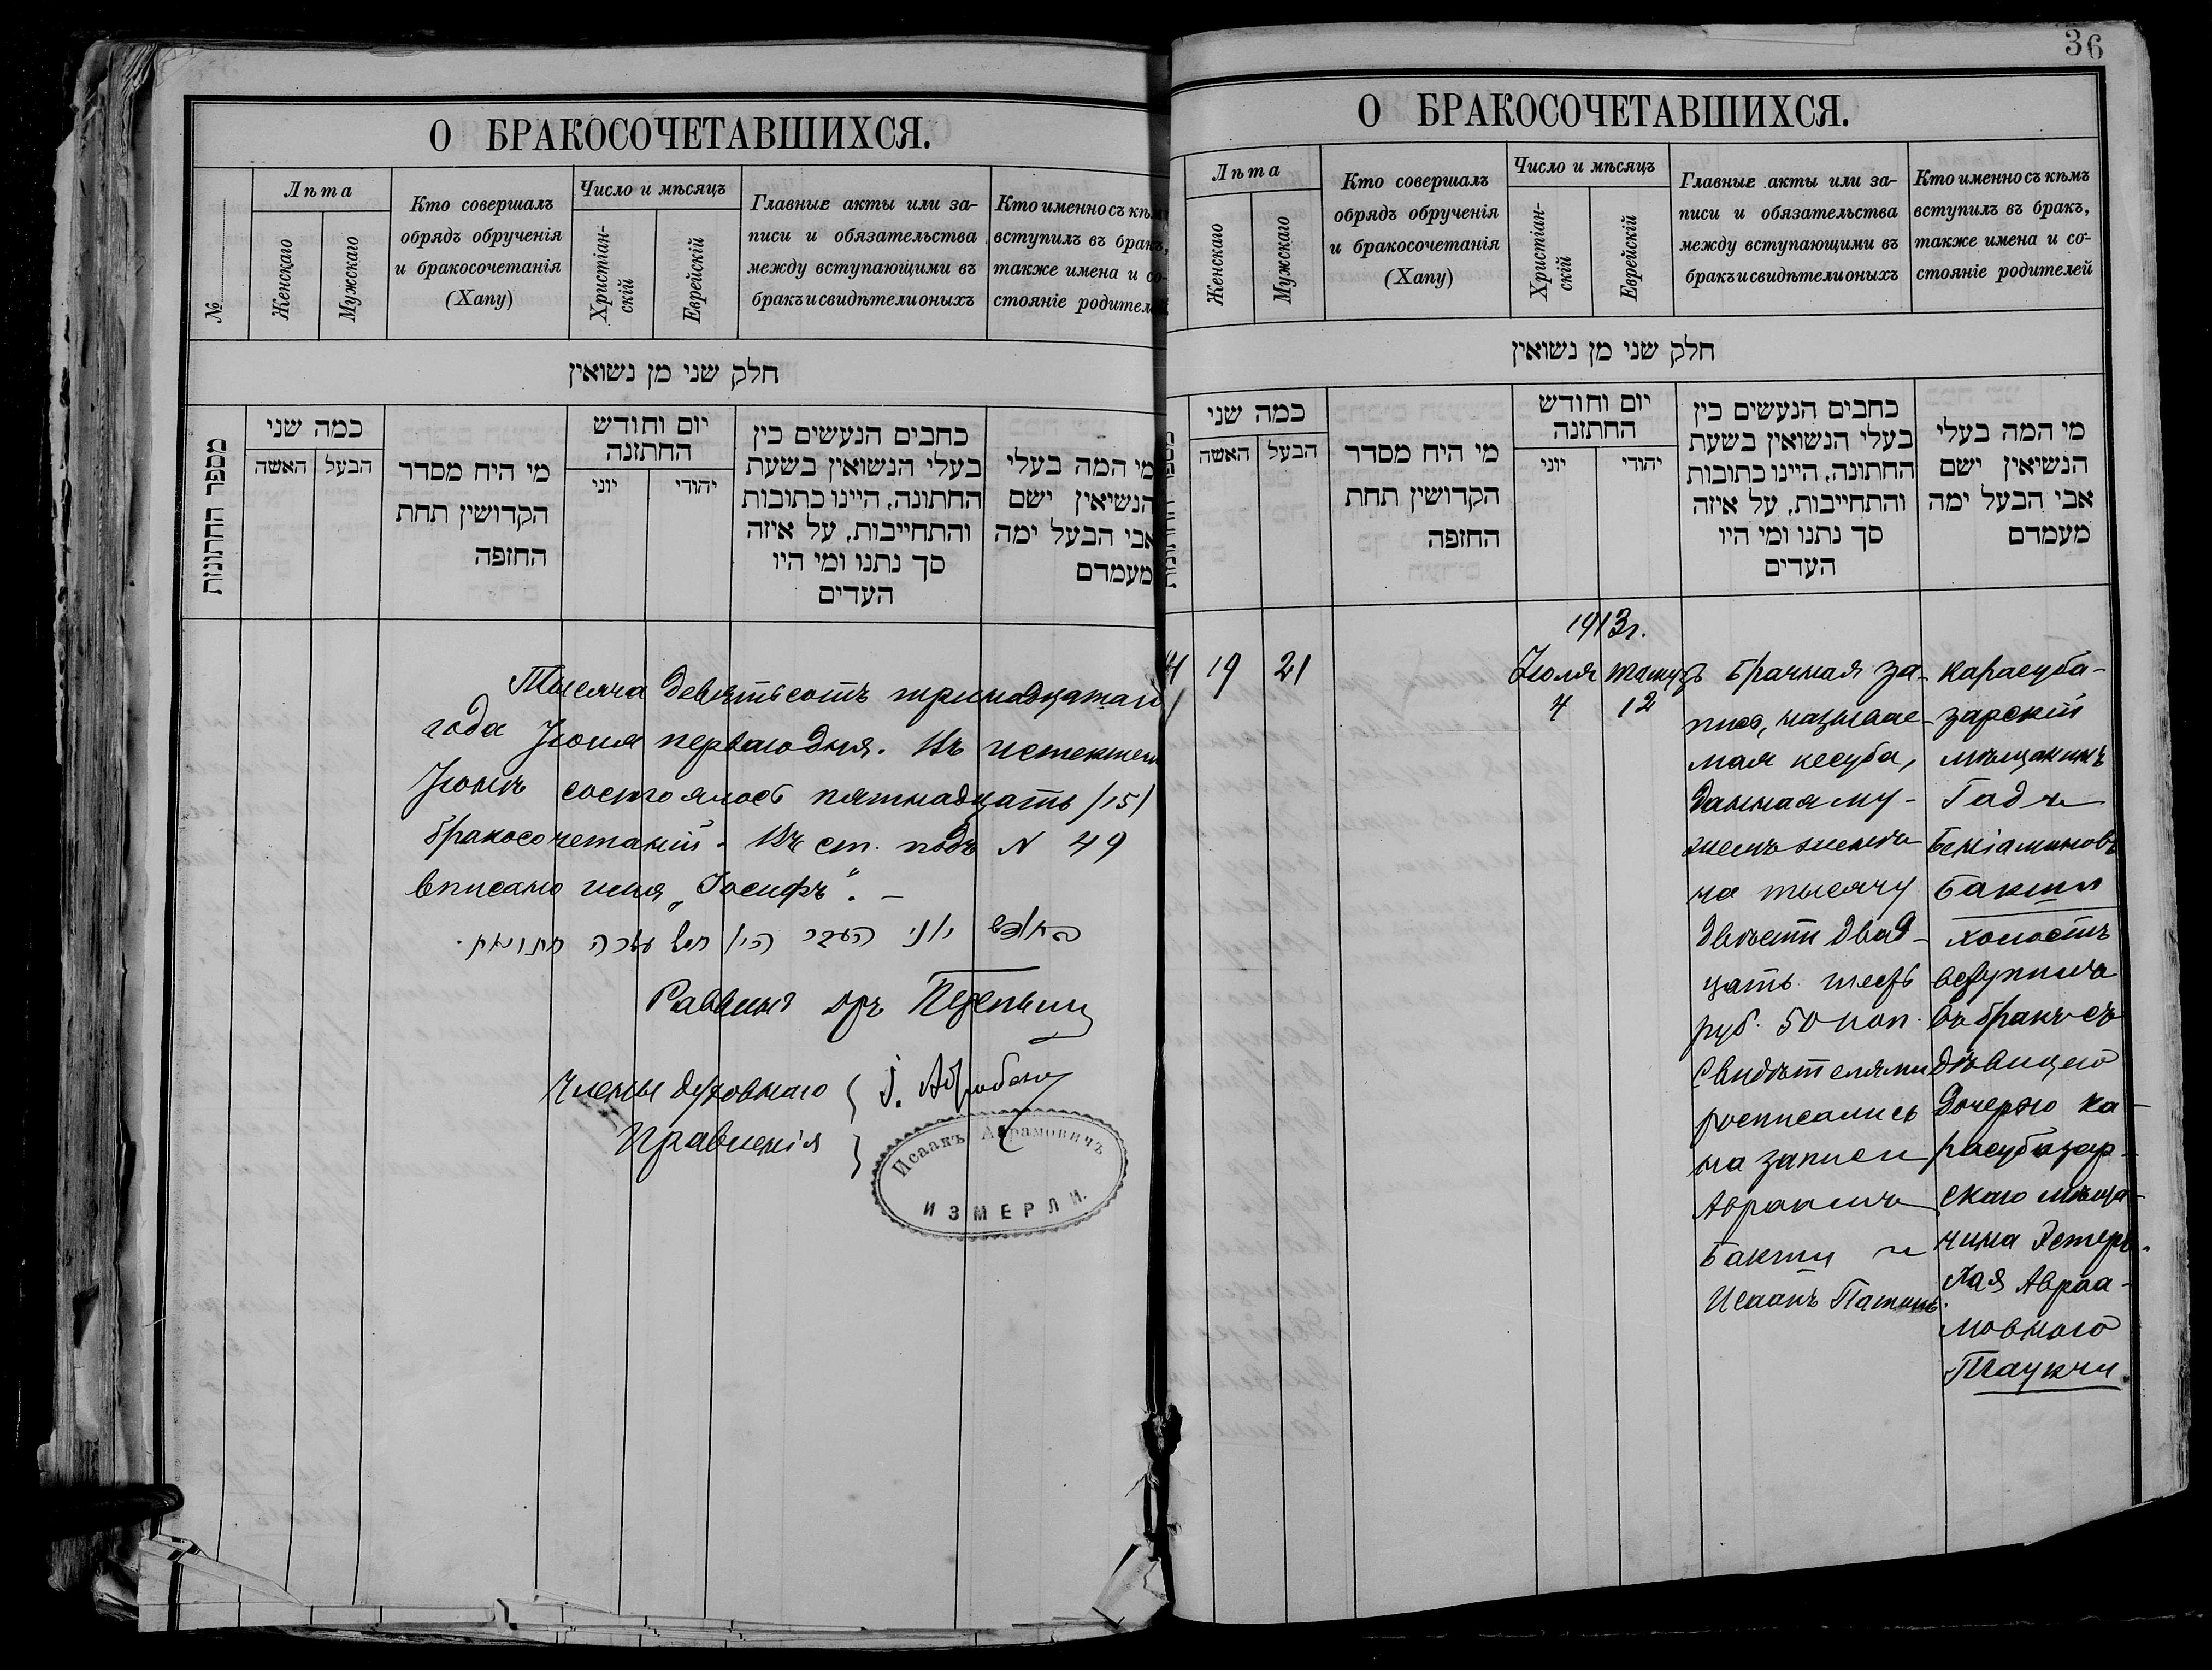 О БРАКОСОЧЕТАВШИХСЯ.
№
Лѣта
Женскаго
Мужскаго
Кто совершалъ
обрядъ обрученія
и бракосочетанія
(Хапу)
Число и мѣсяцъ
Христіан-
скій
Еврейскій
Главные акты или за-
писи и обязательства
между вступающими въ
бракъ и свидѣтели оныхъ
Кто именно съ кѣмъ
вступилъ въ бракъ,
также имена и со-
стояніе родителей
חלק שני מן נשואין
מספר החתונות
כמה שני
האשה
הבעל
מי היח מסדר
הקדושין תחת
החזפה
יום וחודש
החתזנה
יוני
יהודי
כחבים הנעשים כין
בעלי הנשואין בשעת
החתונה, היינו כתובות
והתחייבות, על איזה
סך נתנו ומי היו
העדים
מי המה בעלי
הנשיאין ישם
אבי הבעל ימה
מעמדם
Тысяча девятьсотъ тринадцатаго
года Іюля перваго дня. Въ истекшемъ
Іюнѣ состоялось пятнадцать /15/
бракосочетаній. Въ ст. подъ N 49
вписано имя „Іосифъ“. –
יוני
Раввинъ дръ
Члены духовнаго
Правленія
Исаакъ Абрамовичъ
ИЗМЕРЛИ.
36
О БРАКОСОЧЕТАВШИХСЯ.
Лѣта
Женскаго
Мужскаго
Кто совершалъ
обрядъ обрученія
и бракосочетанія
(Хапу)
Число и мѣсяцъ
Христіан-
скій
Еврейскій
Главные акты или за-
писи и обязательства
между вступающими въ
бракъ и свидѣтели оныхъ
Кто именно съ кѣмъ
вступилъ въ бракъ,
также имена и со-
стояніе родителей
חלק שני מן נשואין
כמה שני
האשה
הבעל
מי היח מסדר
הקדושין תחת
החזפה
יום וחודש
החתזנה
יוני
יהודי
כחבים הנעשים כין
בעלי הנשואין בשעת
החתונה, היינו כתובות
והתחייבות, על איזה
סך נתנו ומי היו
העדים
מי המה בעלי
הנשיאין ישם
אבי הבעל ימה
מעמדם
1913г.
19
21
Іюля
4
Тамузъ
12
Брачная за-
пись, называе-
мая кесуба,
данная му-
жемъ женѣ
на тысячу
двѣсти двад-
цать шесть
руб. 50 коп.
Свидѣтелями
росписались
на записи
Авраамъ
Бакши и
Исаакъ
Карасуба-
зарскій
мѣщанинъ
Гадъ
Беніаминовъ
Бакши
холостъ
вступилъ
въ бракъ съ
дѣвицею
дочерью ка-
расубазар-
скаго мѣща-
нина Эстерь-
Хая Авраа-
мовною
Тлаукчи.